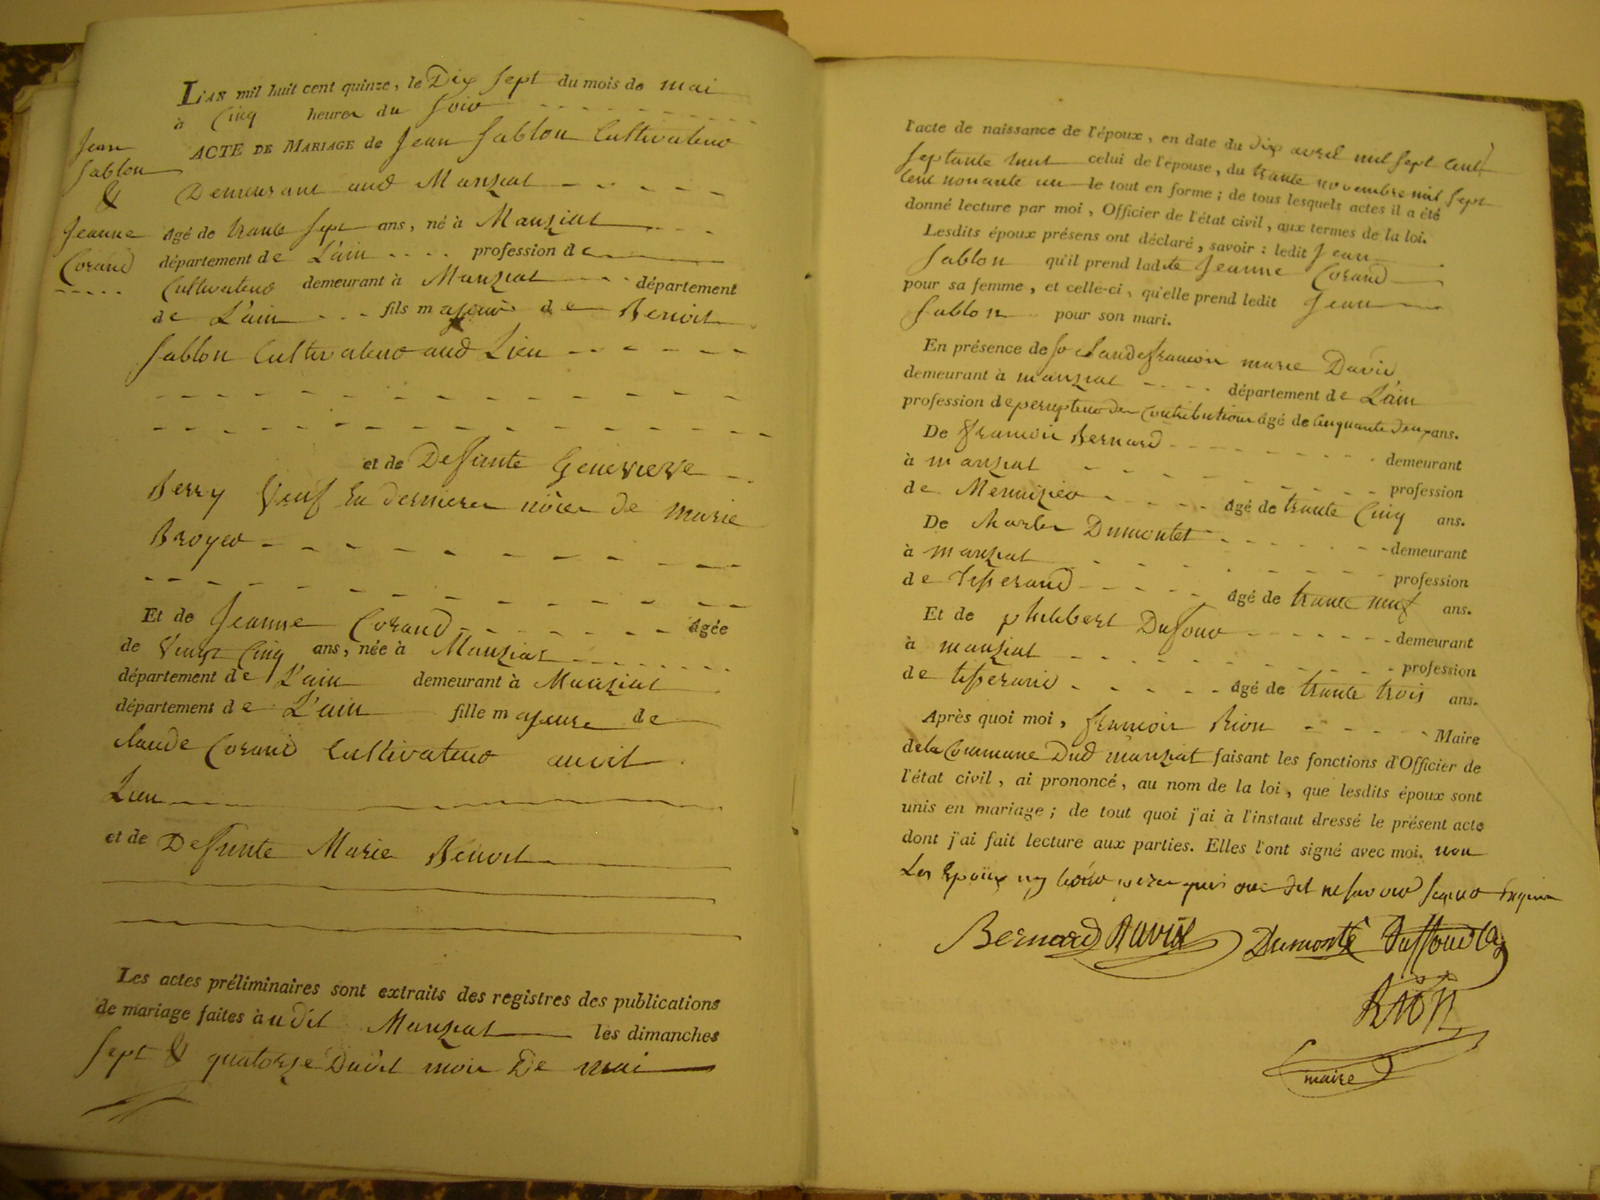 L'an mil huit cent quinze, le Dix Sept du mois de mai
à Cinq heures du Soir
Jean Sablon & Jeanne Corand
ACTE DE MARIAGE de Jean Sablon Cultivateur
Demeurant aud Manziat
âgé de trante Sept ans, né à Manziat
département de L'ain profession de
Cultivateur demeurant à Manziat département
de L'ain fils majeur de Benoit
Sablon Cultivateur aud Lieu
et de Deffunte Genevieve
Berry Veuf En dernieres nôces de marie
Broyer
Et de Jeanne Corand âgée
de Vingt Cinq ans, née à Manziat
département de L'ain demeurant à Manziat
département de L'ain fille majeure de
Claude Corand Cultivateur audit
Lieu
et de Deffunte Marie Benoit
Les actes préliminaires sont extraits des registres des publications
de mariage faites àudit Manziat les dimanches
Sept & quatorze Dudit mois De mai
l'acte de naissance de l'époux, en date du dix avril mil sept cent
septante huit celui de l'épouse, du trante novembre mil sept
cent nonante un le tout en forme; de tous lesquels actes il a été
donné lecture par moi, Officier de l'état civil, aux termes de la loi.
Lesdits époux présens ont déclaré, savoir: ledit Jean
Sablon qu'il prend ladite Jeanne Corand
pour sa femme, et celle-ci, qu'elle prend ledit Jean
Sablon pour son mari.
En présence de Claude françois marie David
demeurant à manziat département de L'ain
profession de percepteur des Contributions âgé de Cinquante deux ans.
De françois Bernard demeurant
à manziat profession
de Menuizier âgé de trante Cinq ans.
De Dumontet demeurant
à manziat profession
de tisserand âgé de trante neuf ans.
Et de philibert Dufour demeurant
à manziat profession
de tisserand âgé de trante trois ans.
Après quoi moi, françois Rion Maire
de la Commune Dud manziat faisant les fonctions d'Officier de
l'état civil, ai prononcé, au nom de la loi, que lesdits époux sont
unis en mariage; de tout quoi j'ai à l'instant dressé le présent acte
dont j'ai fait lecture aux parties. Elles l'ont signé avec moi. non
Les Epoux ny qui ont dit ne savoir signer
Bernard David Dumonté Duffour
Rion
maire